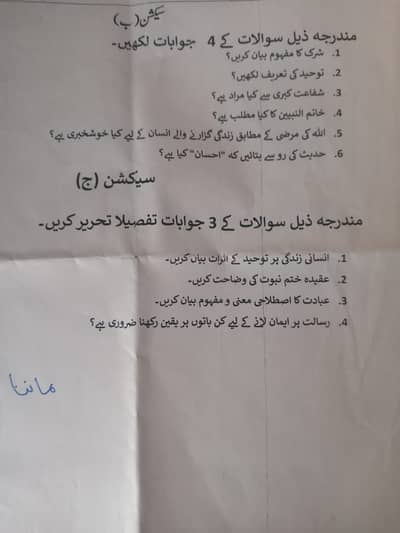 سیکشن (ب)
مندرجہ ذیل سوالات کے 4 جوابات لکھیں۔
1. شرک کا مفہوم بیان کریں؟
2. توحید کی تعریف لکھیں؟
3. شفاعت کبری سے کیا مراد ہے؟
4. خاتم النبیین کا کیا مطلب ہے؟
5. اللہ کی مرضی کے مطابق زندگی گزارنے والے انسان کے لیے کیا خوشخبری ہے؟
6. حدیث کی رو سے بتائیں کہ "احسان" کیا ہے؟
سیکشن (ج)
مندرجہ ذیل سوالات کے 3 جوابات تفصیلا تحریر کریں۔
1. انسانی زندگی پر توحید کے اثرات بیان کریں۔
2. عقیدہ ختم نبوت کی وضاحت کریں۔
3. عبادت کا اصطلاحی معنی و مفہوم بیان کریں۔
4. رسالت پر ایمان لانے کے لیے کن باتوں پر یقین رکھنا ضروری ہے؟
ماننا